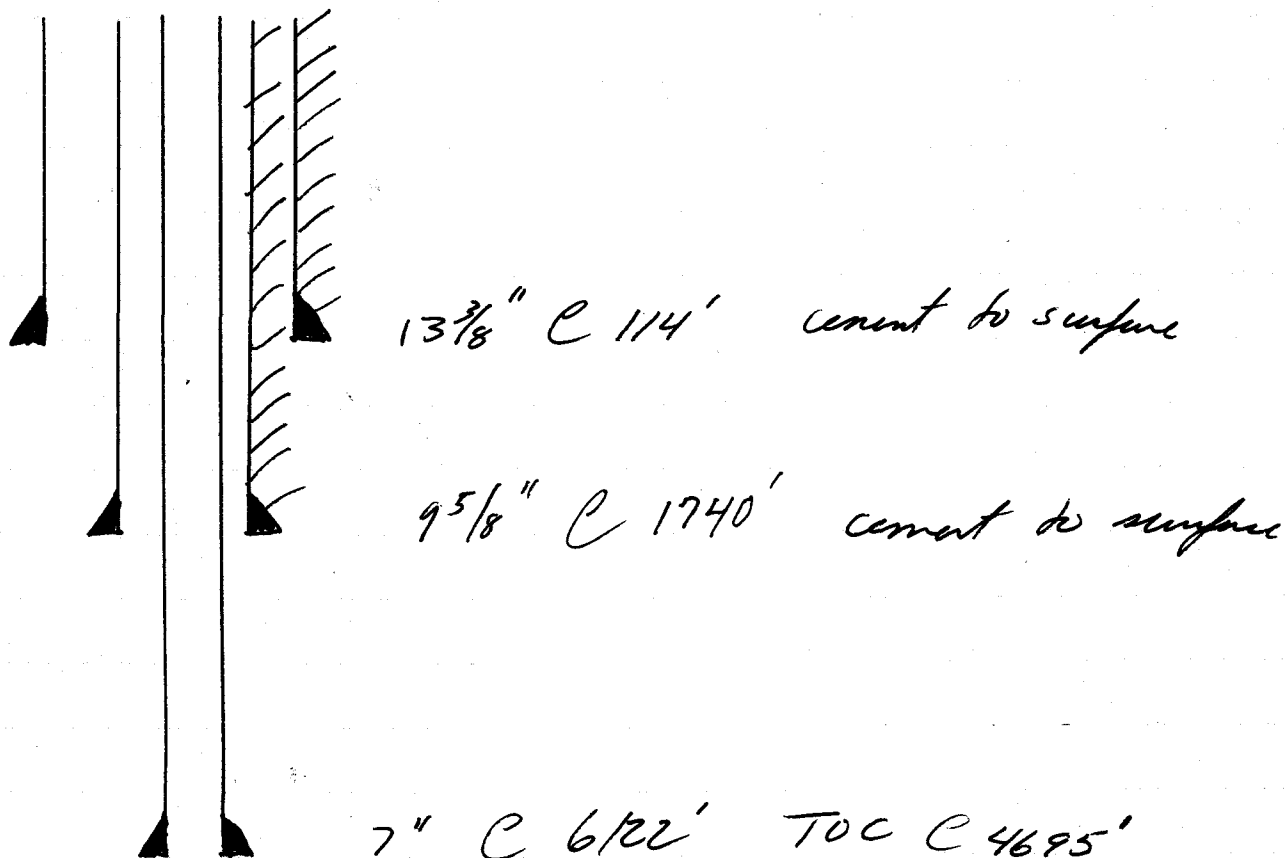 13 3/8" @ 114' cement to surface
9 5/8" @ 1740' cement to surface
7" @ 6122' TOC @ 4695'